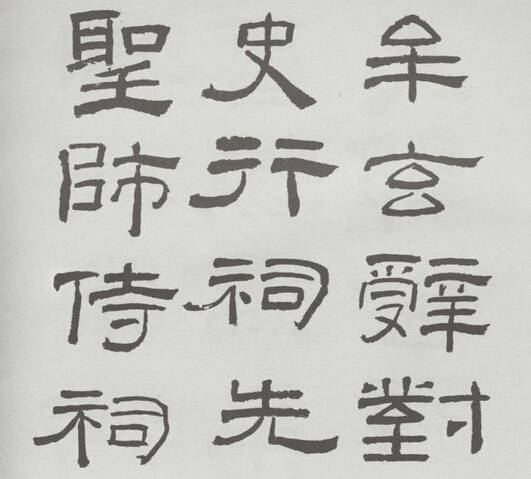 牟玄辤對
史行祠先
聖師侍祠